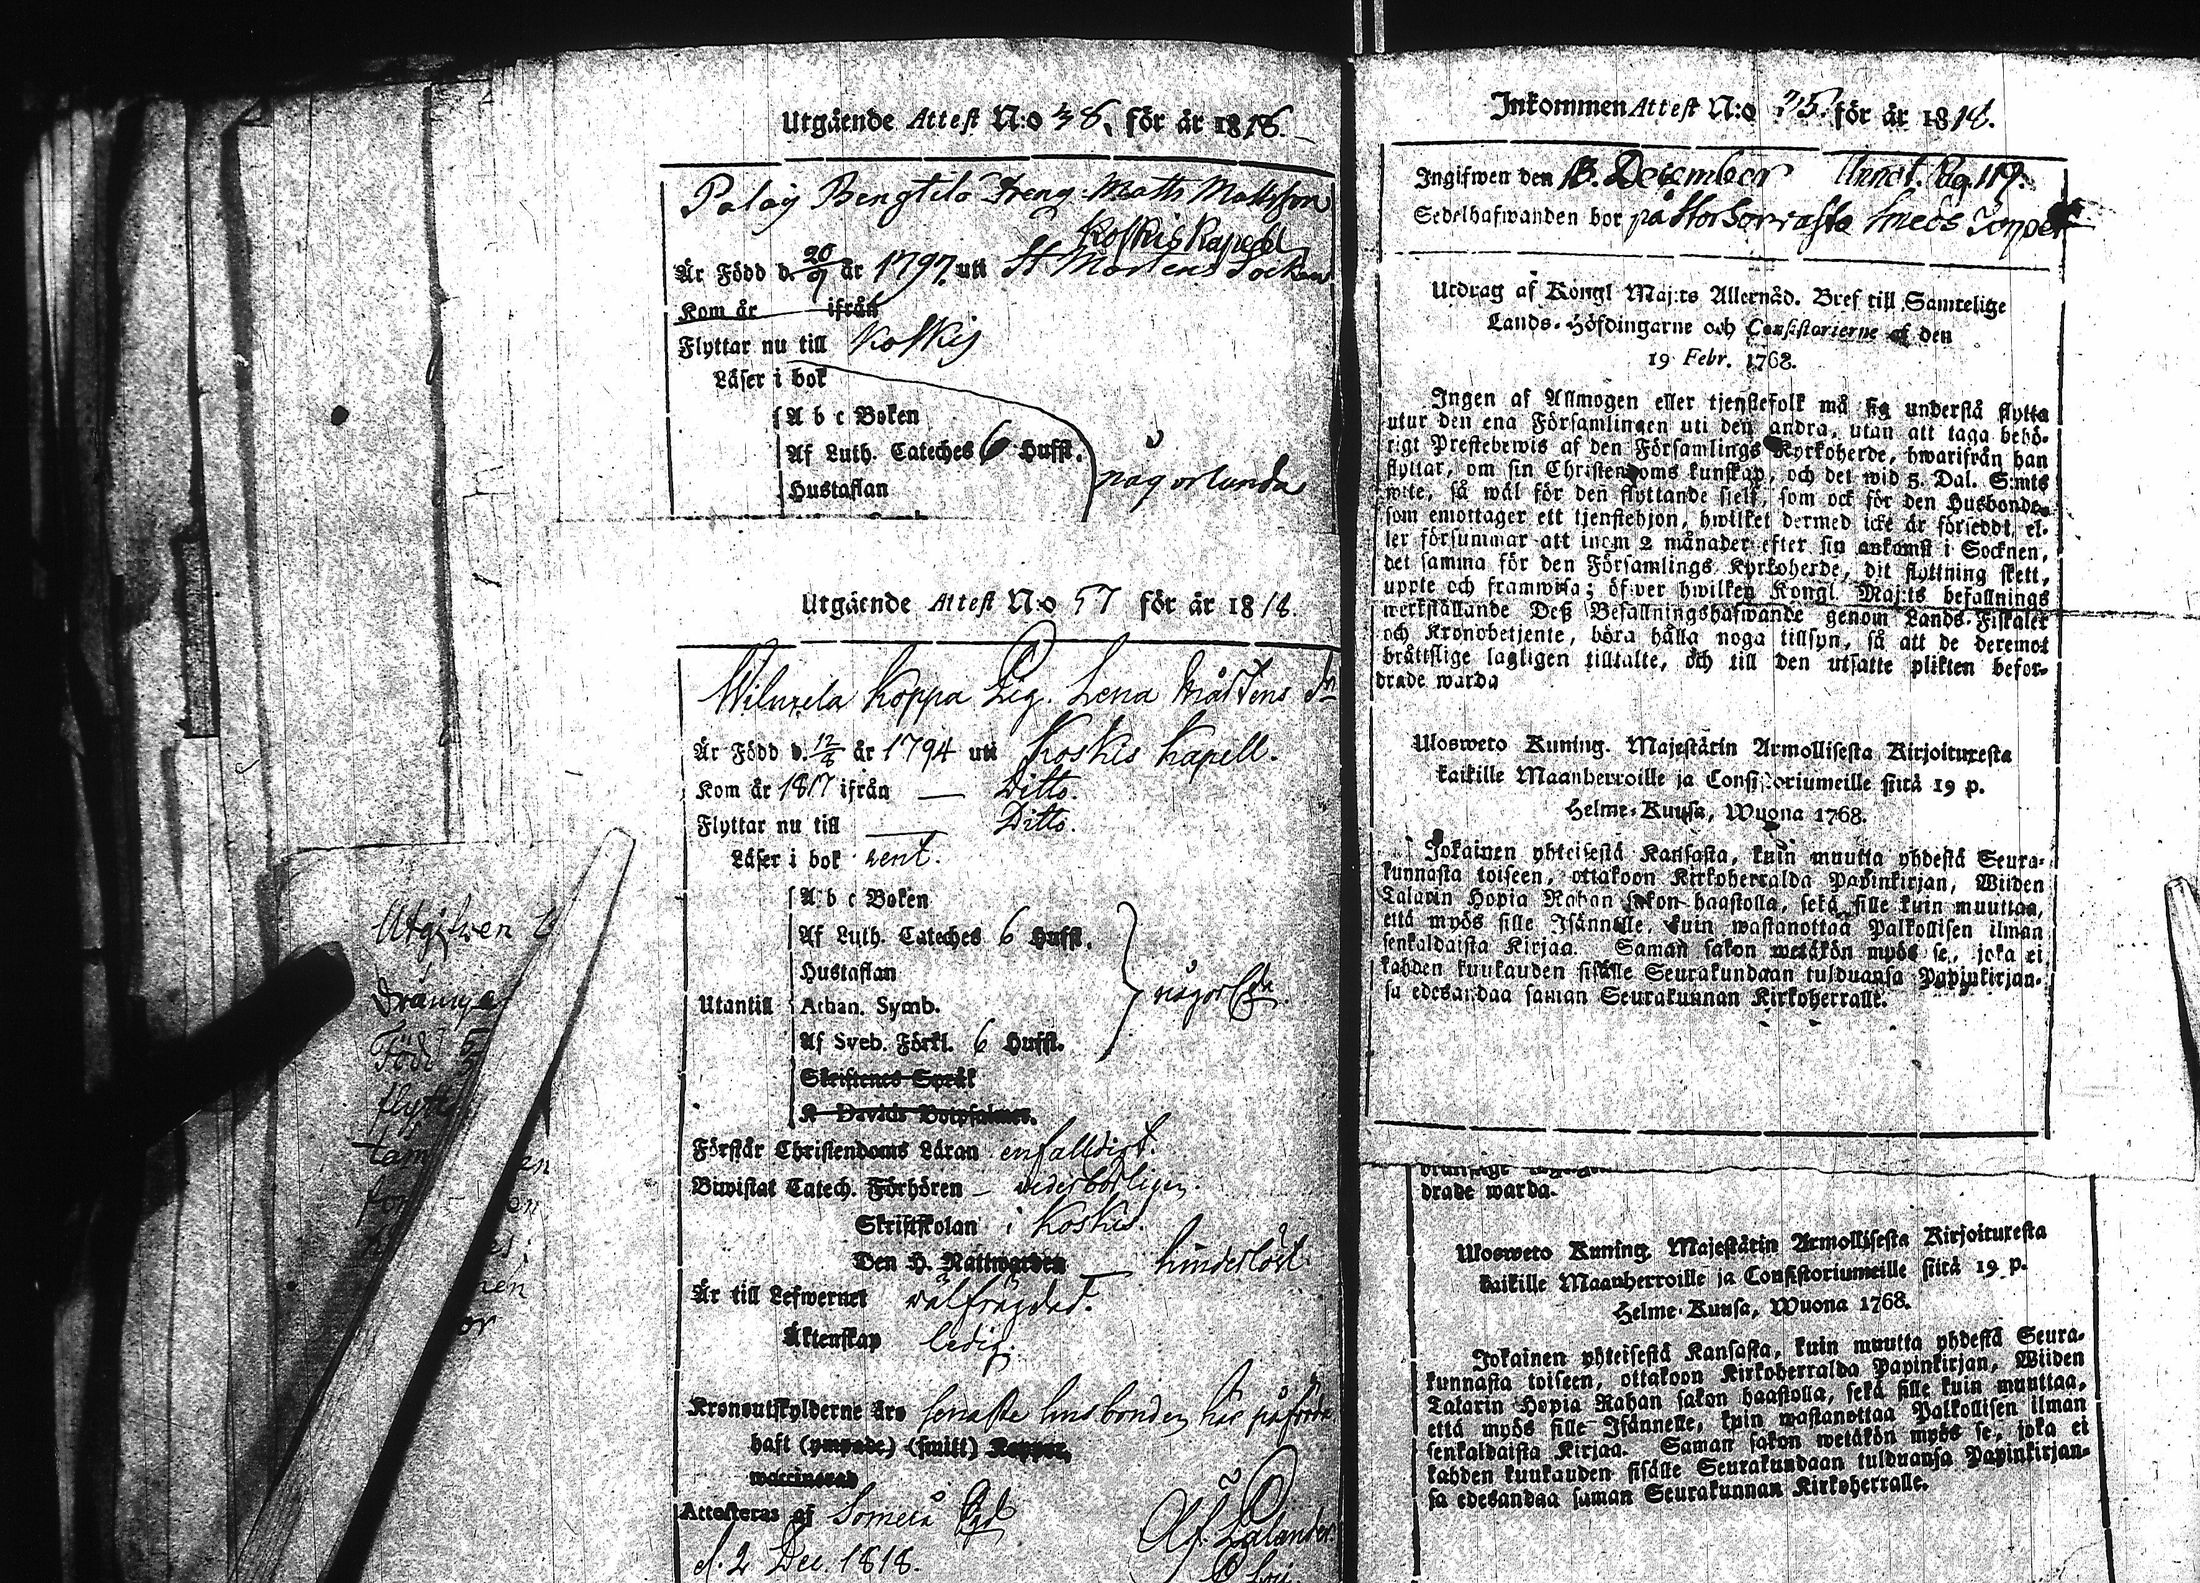 Utgående Attest N:o 38. för år 1818.
Palaj Bengtilä Dreng Matts Mattsson
Koskis Kapell
Är Född d. 20/9 år 1797. uti St Mårtens Socken
Kom år ifrån
Flyttar nu till Koskis
Läser i bok
A b c Boken
Af Luth. Cateches 6 Hufst.
Hustaflan
någorlunda
Utgående Attest N:o 57 för år 1818.
Koppa Pig. Lena Mårtens dr
Är Född d. 12/8 år 1794 uti Koskis Kapell.
Kom år 1817 ifrån — Ditto.
Flyttar nu till — Ditto.
Läser i bok rent.
A b c Boken
Af Luth. Cateches 6 Hufst.
Hustaflan
Utantill Athan. Symb.
Af Sveb. Förkl. 6 Hufst.
Skriftenes Språk
K Davids Botpsalmer.
Förstår Christendoms Läran enfaldigt.
Biwistat Catech. Förhören – wederbörligen.
Skriftskolan i Koskis.
Den H. Nattwarden — hinderlöst.
Är till Lefwernet wälfrägdad.
Äktenskap ledig.
Kronoutskylderne äro senaste husbonden här påförde
haft (ympade) (smitt) Koppor,
waccinerad
Attesteras af Somero Pgd
d. 2 Dec. 1818.
Utgifwen
Född
flyttar
Inkommen Attest N:o 35. för år 1818.
Ingifwen den 13. December Annot. Pag. 119.
Sedelhafwanden bor på Storsorrasto Smeds
Utdrag af Kongl Maj:ts Allernåd. Bref till Samtelige
Lands-Höfdingarne och Consistorierne af den
19 Febr. 1768.
Ingen af Allmogen eller tjenstefolk må sig understå flytta
utur den ena Församlingen uti den andra, utan att taga behö-
rigt Prestebewis af den Församlings Kyrkoherde, hwarifrån han
flyttar, om sin Christendoms kunskap, och det wid 5. Dal. S:mts
wite, så wäl för den flyttande sielf, som ock för den Husbonde
som emottager ett tjenstehjon, hwilket dermed icke är försedt, el-
ler försummar att inom 2 månader efter sin ankomst i Socknen,
det samma för den Församlings Kyrkoherde, dit flyttning skett,
uppte och framwisa; öfwer hwilken Kongl. Maj:ts befallnings
werkställande Deß Befallningshafwande genom Lands-Fiskaler
och Kronobetjente, böra hålla noga tillsyn, så att de deremot
bråttslige lagligen tilltalte, och till den utsatte plikten befor-
drade warda
Ulosweto Kuning. Majestätin Armollisesta Kirjoituxesta
kaikille Maanherroille ja Consistoriumeille siitä 19 p.
Helme-Kuusa, Wuona 1768.
Jokainen yhteisestä Kansasta, kuin muutta yhdestä Seura-
kunnasta toiseen, ottakoon Kirkoherralda Papinkirjan, Wiiden
Talarin Hopia Rahan sakon haastolla, sekä sille kuin muuttaa,
että myös sille Isännälle, kuin wastanottaa Palkollisen ilman
senkaldaista Kirjaa. Saman sakon wetäkön myös se, joka ei
kahden kuukauden sisälle Seurakundaan tulduansa Papinkirjan-
sa edesandaa saman Seurakunnan Kirkoherralle.
drade warda.
Ulosweto Kuning. Majestätin Armollisesta Kirjoituxesta
kaikille Maanherroille ja Consistoriumeille siitä 19 p.
Helme-Kuusa, Wuona 1768.
Jokainen yhteisestä Kansasta, kuin muutta yhdestä Seura-
kunnasta toiseen, ottakoon Kirkoherralda Papinkirjan, Wiiden
Talarin Hopia Rahan sakon haastolla, sekä sille kuin muuttaa,
että myös sille Isännelle, kuin wastanottaa Palkollisen ilman
senkaldaista Kirjaa. Saman sakon wetäkön myös se, joka ei
kahden kuukauden sisälle Seurakundaan tulduansa Papinkirjan-
sa edesandaa saman Seurakunnan Kirkoherralle.